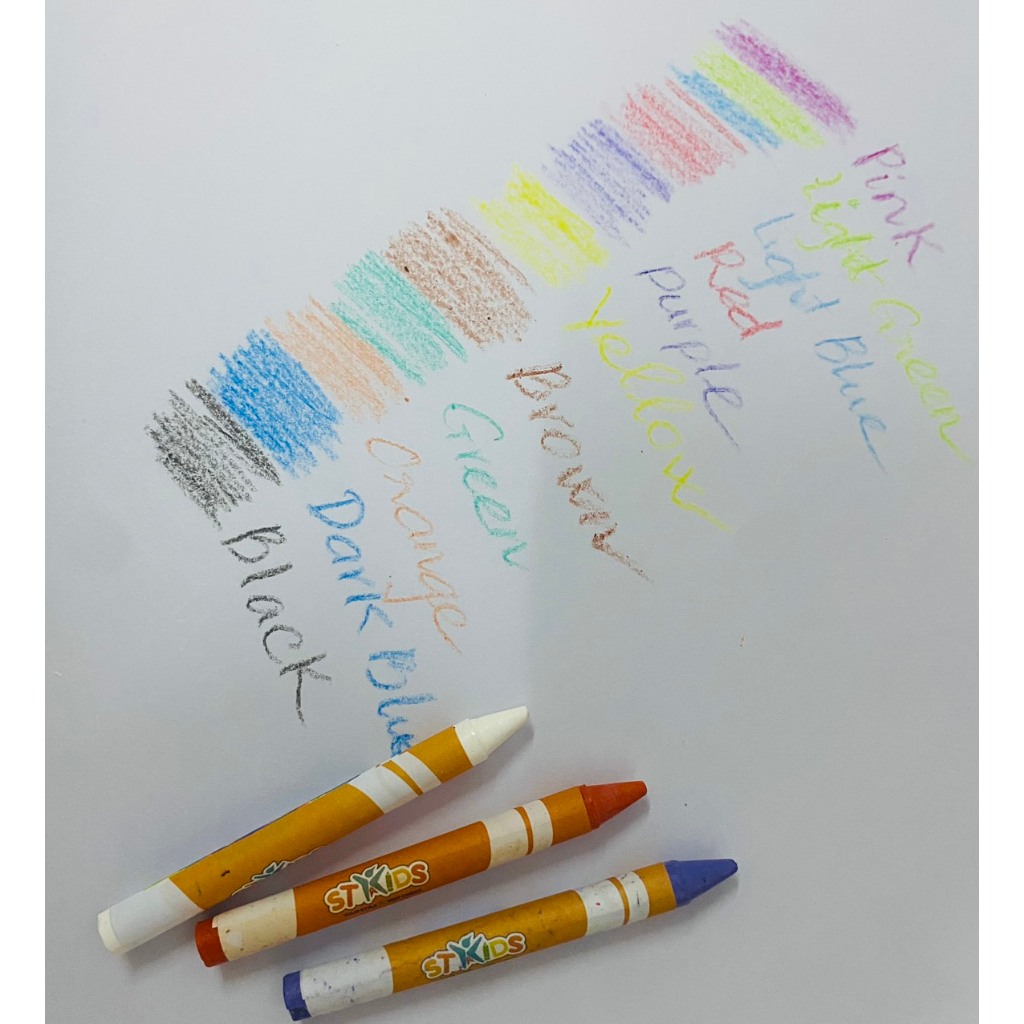 Pink
Light Green
Light Blue
Red
Purple
Yellow
Brown
Green
Orange
Dark Blue
Black
STKIDS
STKIDS